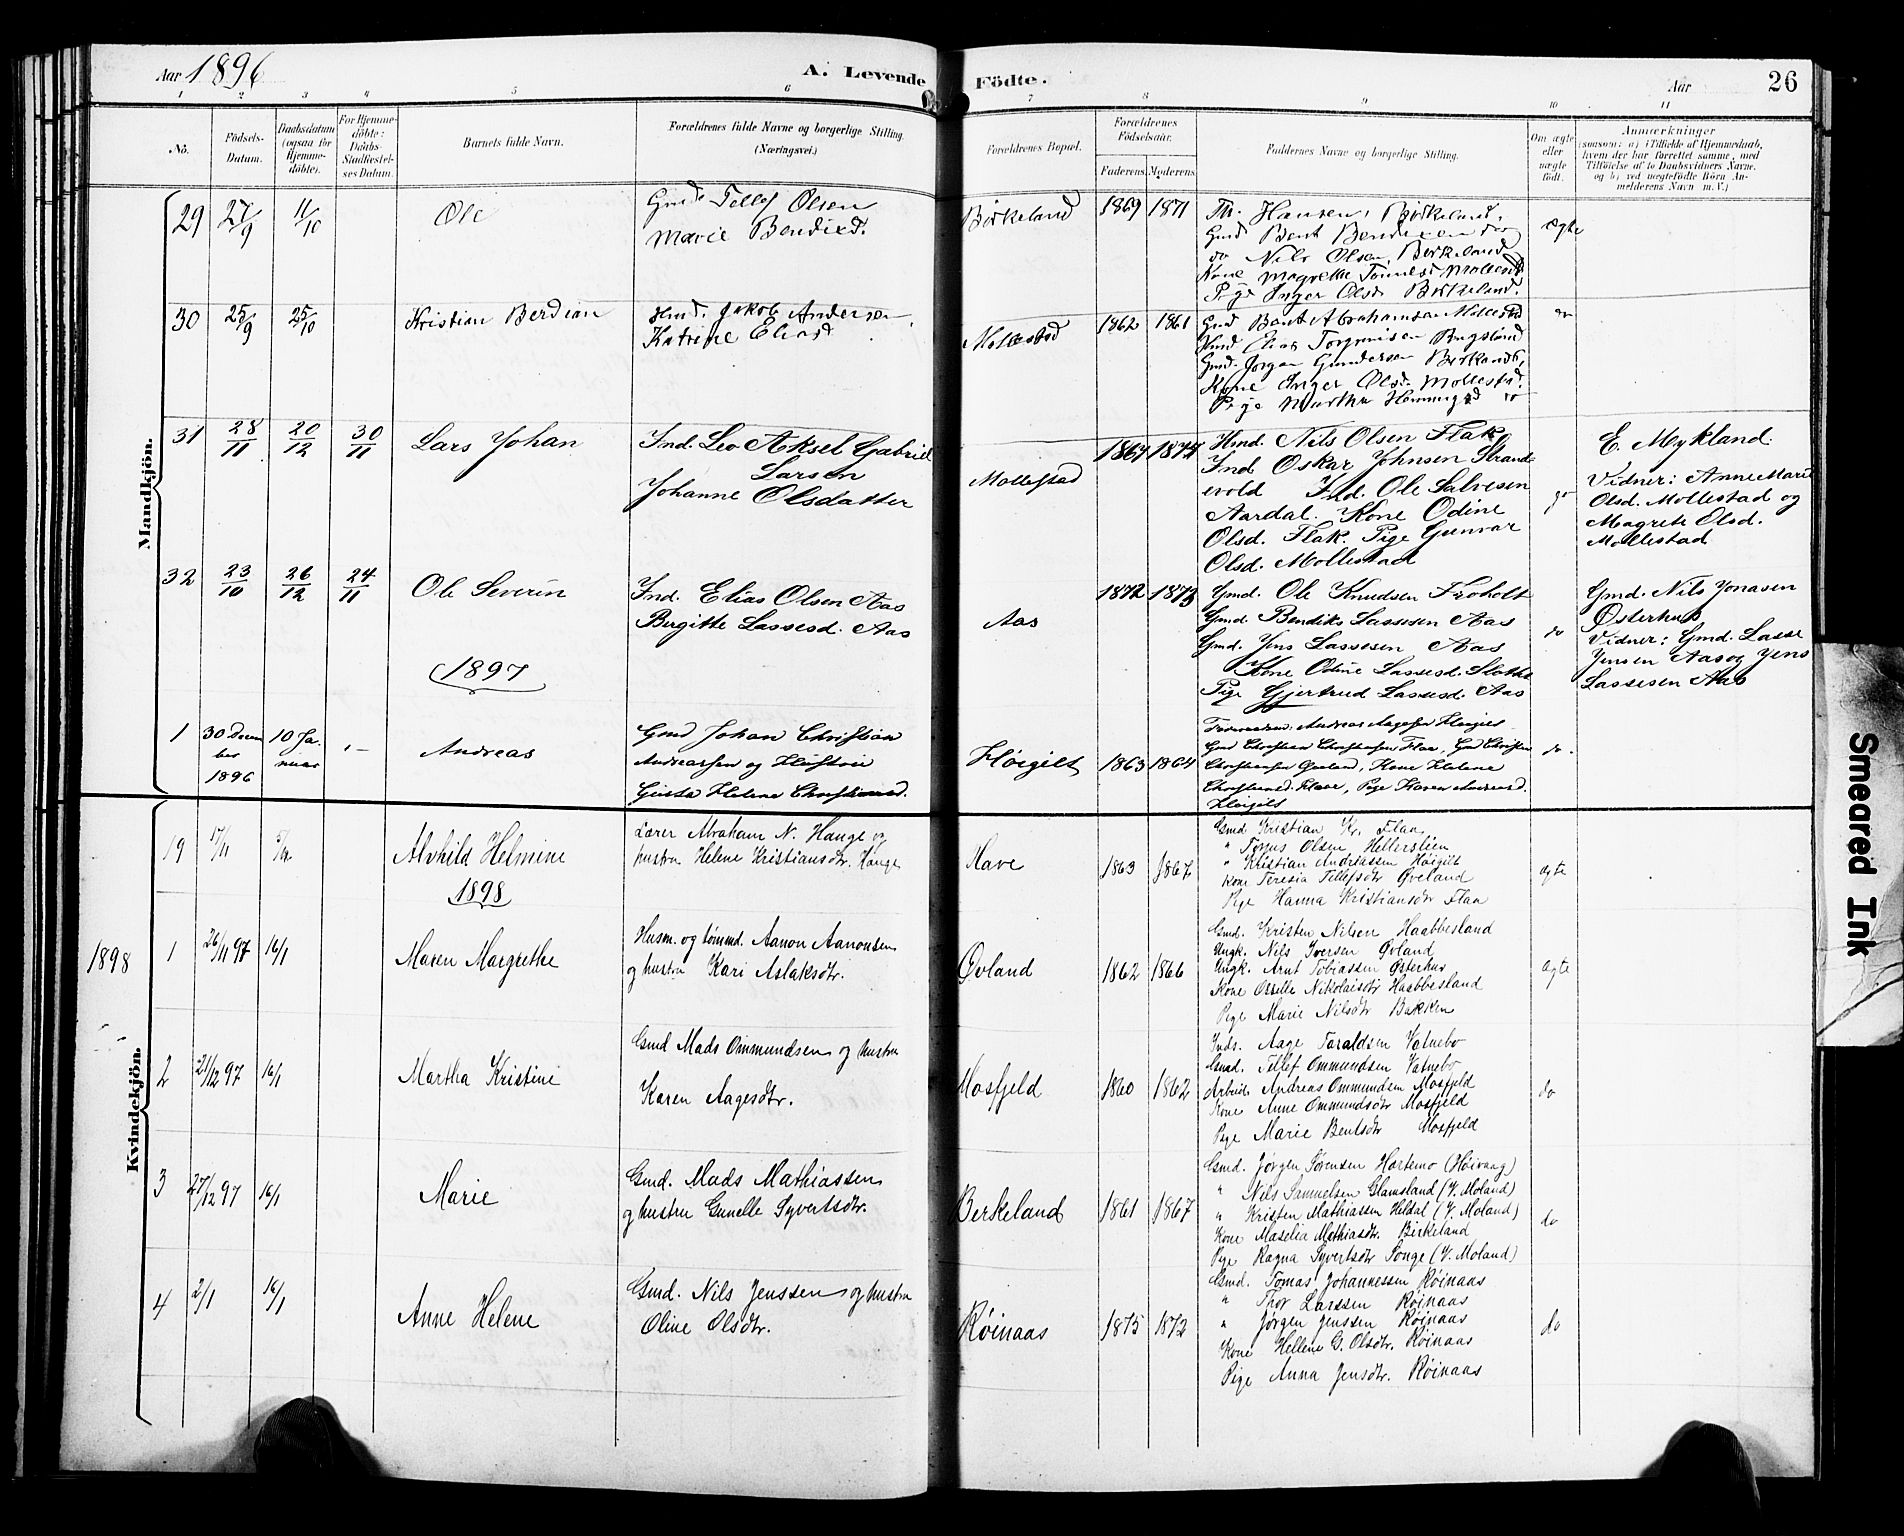 Aar 1896
A. Levende Födte.
Aar
26
1 2 3 4 5 6 7 8 9 10 11
No.
Födsels-Datum.
Daabsdatum (ogsaa for Hjemme-döbte).
For Hjemme-döbte: Daabs-Stadfæstel-ses Datum.
Barnets fulde Navn.
Forældrenes fulde Navne og borgerlige Stilling. (Næringsvei.)
Forældrenes Bopæl.
Forældrenes Födselsaar.
Faderens. Moderens.
Faddernes Navne og borgerlige Stilling.
Om ægte eller uægte födt.
Anmærkninger
saasom: a) i Tilfælde af Hjemmedaab,
hvem der har forrettet samme, med
Tilföielse af to Daabsvidners Navne.
og b) ved uægtefödte Börn An-
melderens Navn m. V.)
Mandkjön.
29 27/9 11/10 Ole
Gmd Tellef Olsen
Marie Bendixd.
Birkeland 1869 1871
Th. Hansen, Birkeland.
Gmd Bent Bendixen do
do Nils Olsen, Birkeland
Kone Magrethe Tønnesd Mollestad
Pige Inger Olsd Birkeland.
Ægte
30 25/9 25/10 Kristian Berdian
Hmd. Jakob Andersen
Katrine Eliasd
Mollestad 1862 1861
Gmd Bent Abrahamsen Mollestad
Hmd Elias Torgrimsen
Gmd. Jørgen Gundersen
Kone Inger Olsd. Mollestad.
Pige Martha Hemmingsd do
do
31 28/11 20/12 30/11 Lars Johan
Ind. Leo Aksel Gabriel
Larsen
Johanne Olsdatter
Mollestad 1867 1874
Hmd. Nils Olsen Flak
Ind Oskar Johnsen Strande
vold Ind. Ole Salvesen
Aardal. Kone Odine
Olsd. Flak. Pige Gunvor
Olsd. Mollestad
do
E. Mykland.
Vidner: Anne Marie
Olsd. Mollestad og
Magrete Olsd.
Mollestad
32 23/10 26/12 24/11 Ole Severin
Ind. Elias Olsen Aas
Birgitte Lassesd. Aas
Aas 1872 1873
Gmd. Ole Knudsen Froholt
Gmd. Bendiks Lassesen Aas
Gmd. Jens Lassesen Aas
Kone Odine Lassesd.
Pige Gjertrud Lassesd. Aas
do
Gmd. Nils Jonasen
Østerhus
Vidner: Gmd. Lasse
Jensen Aas og Jens
Lassesen Aas
1897
1 30 Decem
ber
1896
10 Ja
nuar
Andreas
Gmd Johan Christian
Andreassen og Hustru
Gusta Helene Christiansd.
Høigilt 1863 1864
Andreas Aagesen Høigilt
Gmd Christian Christiansen Flaa, Gmd Christen
Christiansen Øvland, Kone Helene
Christiansd. Flaa, Pige Karen Andreasd.
Høigilt
do.
Kvindekjön.
19 17/11 5/12 Alvhild Helmine
Lærer Abraham N. Hauge og
hustru Helene Kristiansdtr. Hauge
Have 1863 1867
Gmd Kristian Kr. Flaa
" Torjus Olsen Hellerslien
" Kristian Andreassen Høigilt
Kone Teresia Tellefsdtr Øveland
Pige Hanna Kristiansdtr Flaa
ægte
1898
1898
1 26/11 97 16/1 Maren Margrethe
Husm. og tømmd. Aanon Aanonsen
og hustru Kari Aslaksdtr.
Øvland 1862 1866
Gmd. Kristen Nilsen Haabbesland
Ungk. Nils Iversen Øvland
Ungk. Arnt Tobiassen Østerhus
Kone Osselle Nikolaisdtr Haabbesland
Pige Marie Nilsdtr Bakken
Ægte
2 21/12 97 16/1 Martha Kristine
Gmd Mads Ommundsen og hustru
Karen Aagesdtr.
Mosfjeld 1860 1862
Inds. Aage Taraldsen Vatnebo
Gmd. Tellef Ommundsen Vatnebo
Arbeids. Andreas Ommundsen Mosfjeld
Kone Anne Ommundsdtr Mosfjeld
Pige Marie Bentsdtr Mosfjeld
do
3 27/12 97 16/1 Marie
Gmd. Mads Mathiassen
og hustru Gunelle Syvertsdtr.
Berkeland 1861 1867
Gmd. Jørgen Sørensen Hartemo (Høivaag)
" Nils Samuelsen Glamsland (V. Moland)
" Kristen Mathiassen Heldal (V. Moland)
Kone Maselia Mathiasdtr. Birkeland
Pige Ragna Syvertsdtr Songe (V. Moland)
do
4 2/1 16/1 Anne Helene
Gmd. Nils Jenssen og hustru
Oline Olsdtr.
Røinaas 1875 1872
Gmd. Tomas Johannessen Røinaas
" Thor Larssen Røinaas
" Jørgen Jenssen Røinaas
Kone Hellene G. Olsdtr. Røinaas
Pige Anna Jensdtr. Røinaas
do
Smeared Ink